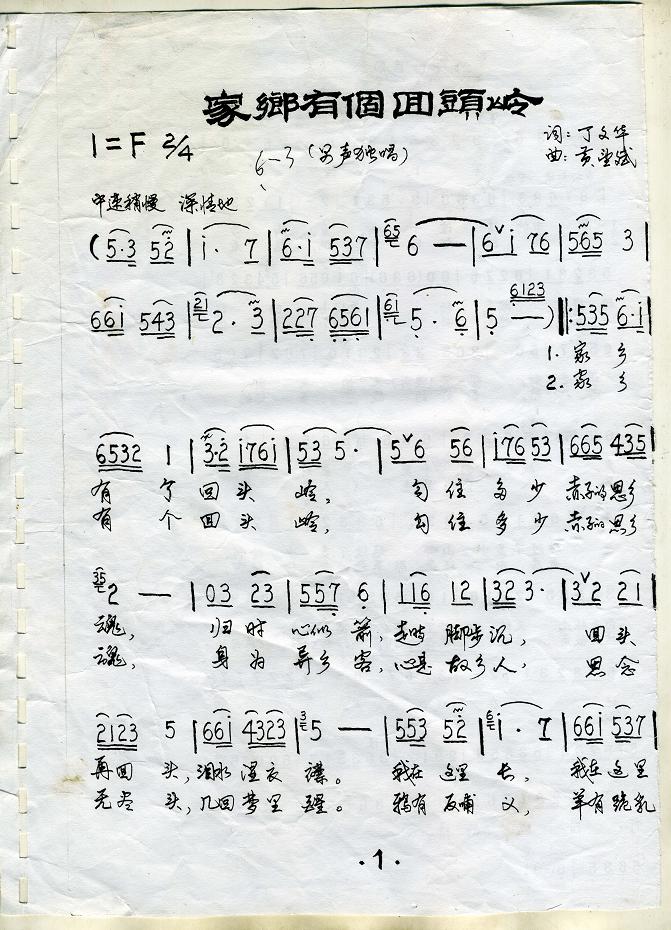 家鄉有個回頭岭
1=F 2/4
6—3 (男声独唱)
词: 丁文华
曲: 黄圣斌
中速稍慢 深情地
(5·3 52̇ | i· 7 | 6·i 537 | 65 6 — | 6 i 76 | 565 3 |
66i 543 | 21 2· 3 | 227 6561 | 61 5· 6 | 5 6123 —) |: 535 6·i |
1. 家乡
2. 家乡
6532 1 | 3̇·2̇ i76i | 53 5· | 5 6 56 | i76 53 | 665 435 |
有个回头岭, 勾住多少赤子的思乡
有个回头岭, 勾住多少赤子的思乡
35 2 — | 03 23 | 557 6 | 116 12 | 32 3· | 3 2 21 |
魂, 归时心似箭, 走时脚步沉, 回头
魂, 身为异乡客, 心是故乡人, 思念
2123 5 | 66i 4323 | 3 5 — | 553 52̇ | 6 i· 7 | 66i 537 |
再回头, 泪水湿衣襟。 我在这里长, 我在这里
无尽头, 几回梦里醒。 鸦有反哺义, 羊有跪乳
·1·